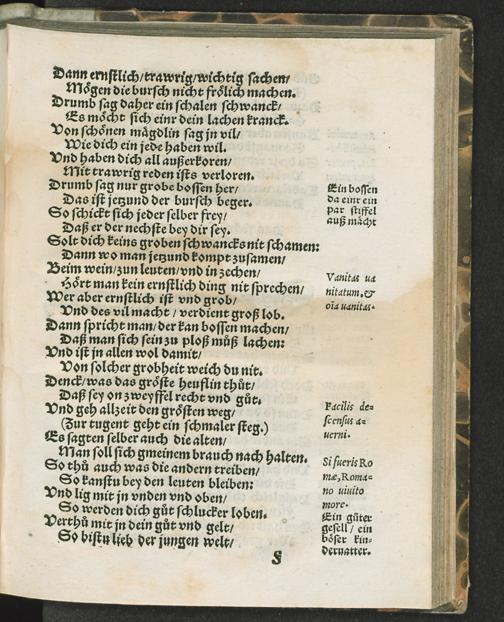 Dann ernstlich/trawrig/wichtig sachen/
Mögen die bursch nicht frölich machen.
Drumb sag daher ein schalen schwanck/
Es möcht sich einr dein lachen kranck.
Von schönen mägdlin sag jn vil/
Wie dich ein jede haben wil.
Vnd haben dich all außerkoren/
Mit trawrig reden ists verloren.
Drumb sag nur grobe bossen her/
Das ist jetzund der bursch beger.
So schickt sich jeder selber frey/
Daß er der nechste bey dir sey.
Solt dich keins groben schwancks nit schamen:
Dann wo man jetzund kompt zusamen/
Beim wein/zun leuten/vnd in zechen/
Hört man kein ernstlich ding nit sprechen/
Wer aber ernstlich ist vnd grob/
Vnd des vil macht/verdient groß lob.
Dann spricht man/der kan bossen machen/
Daß man sich sein zu ploß můß lachen:
Vnd ist jn allen wol damit/
Von solcher grobheit weich du nit.
Denck/was das gröste heuflin thůt/
Daß sey on zweyffel recht vnd gůt.
Vnd geh allzeit den grösten weg/
(Zur tugent geht ein schmaler steg.)
Es sagten selber auch die alten/
Man soll sich gmeinem brauch nach halten.
So thů auch was die andern treiben/
So kanstu bey den leuten bleiben:
Vnd lig mit jn vnden vnd oben/
So werden dich gůt schlucker loben.
Verthů mit jn dein gůt vnd gelt/
So bistu lieb der jungen welt/
F
Ein bossen
da einr ein
par stiffel
auß macht
Vanitas ua
nitatum, &
oĩa uanitas.
Facilis de=
scensus a=
uerni.
Si fueris Ro
mæ, Roma=
no uiuito
more.
Ein gůter
gesell/ein
böser kin=
dervatter.